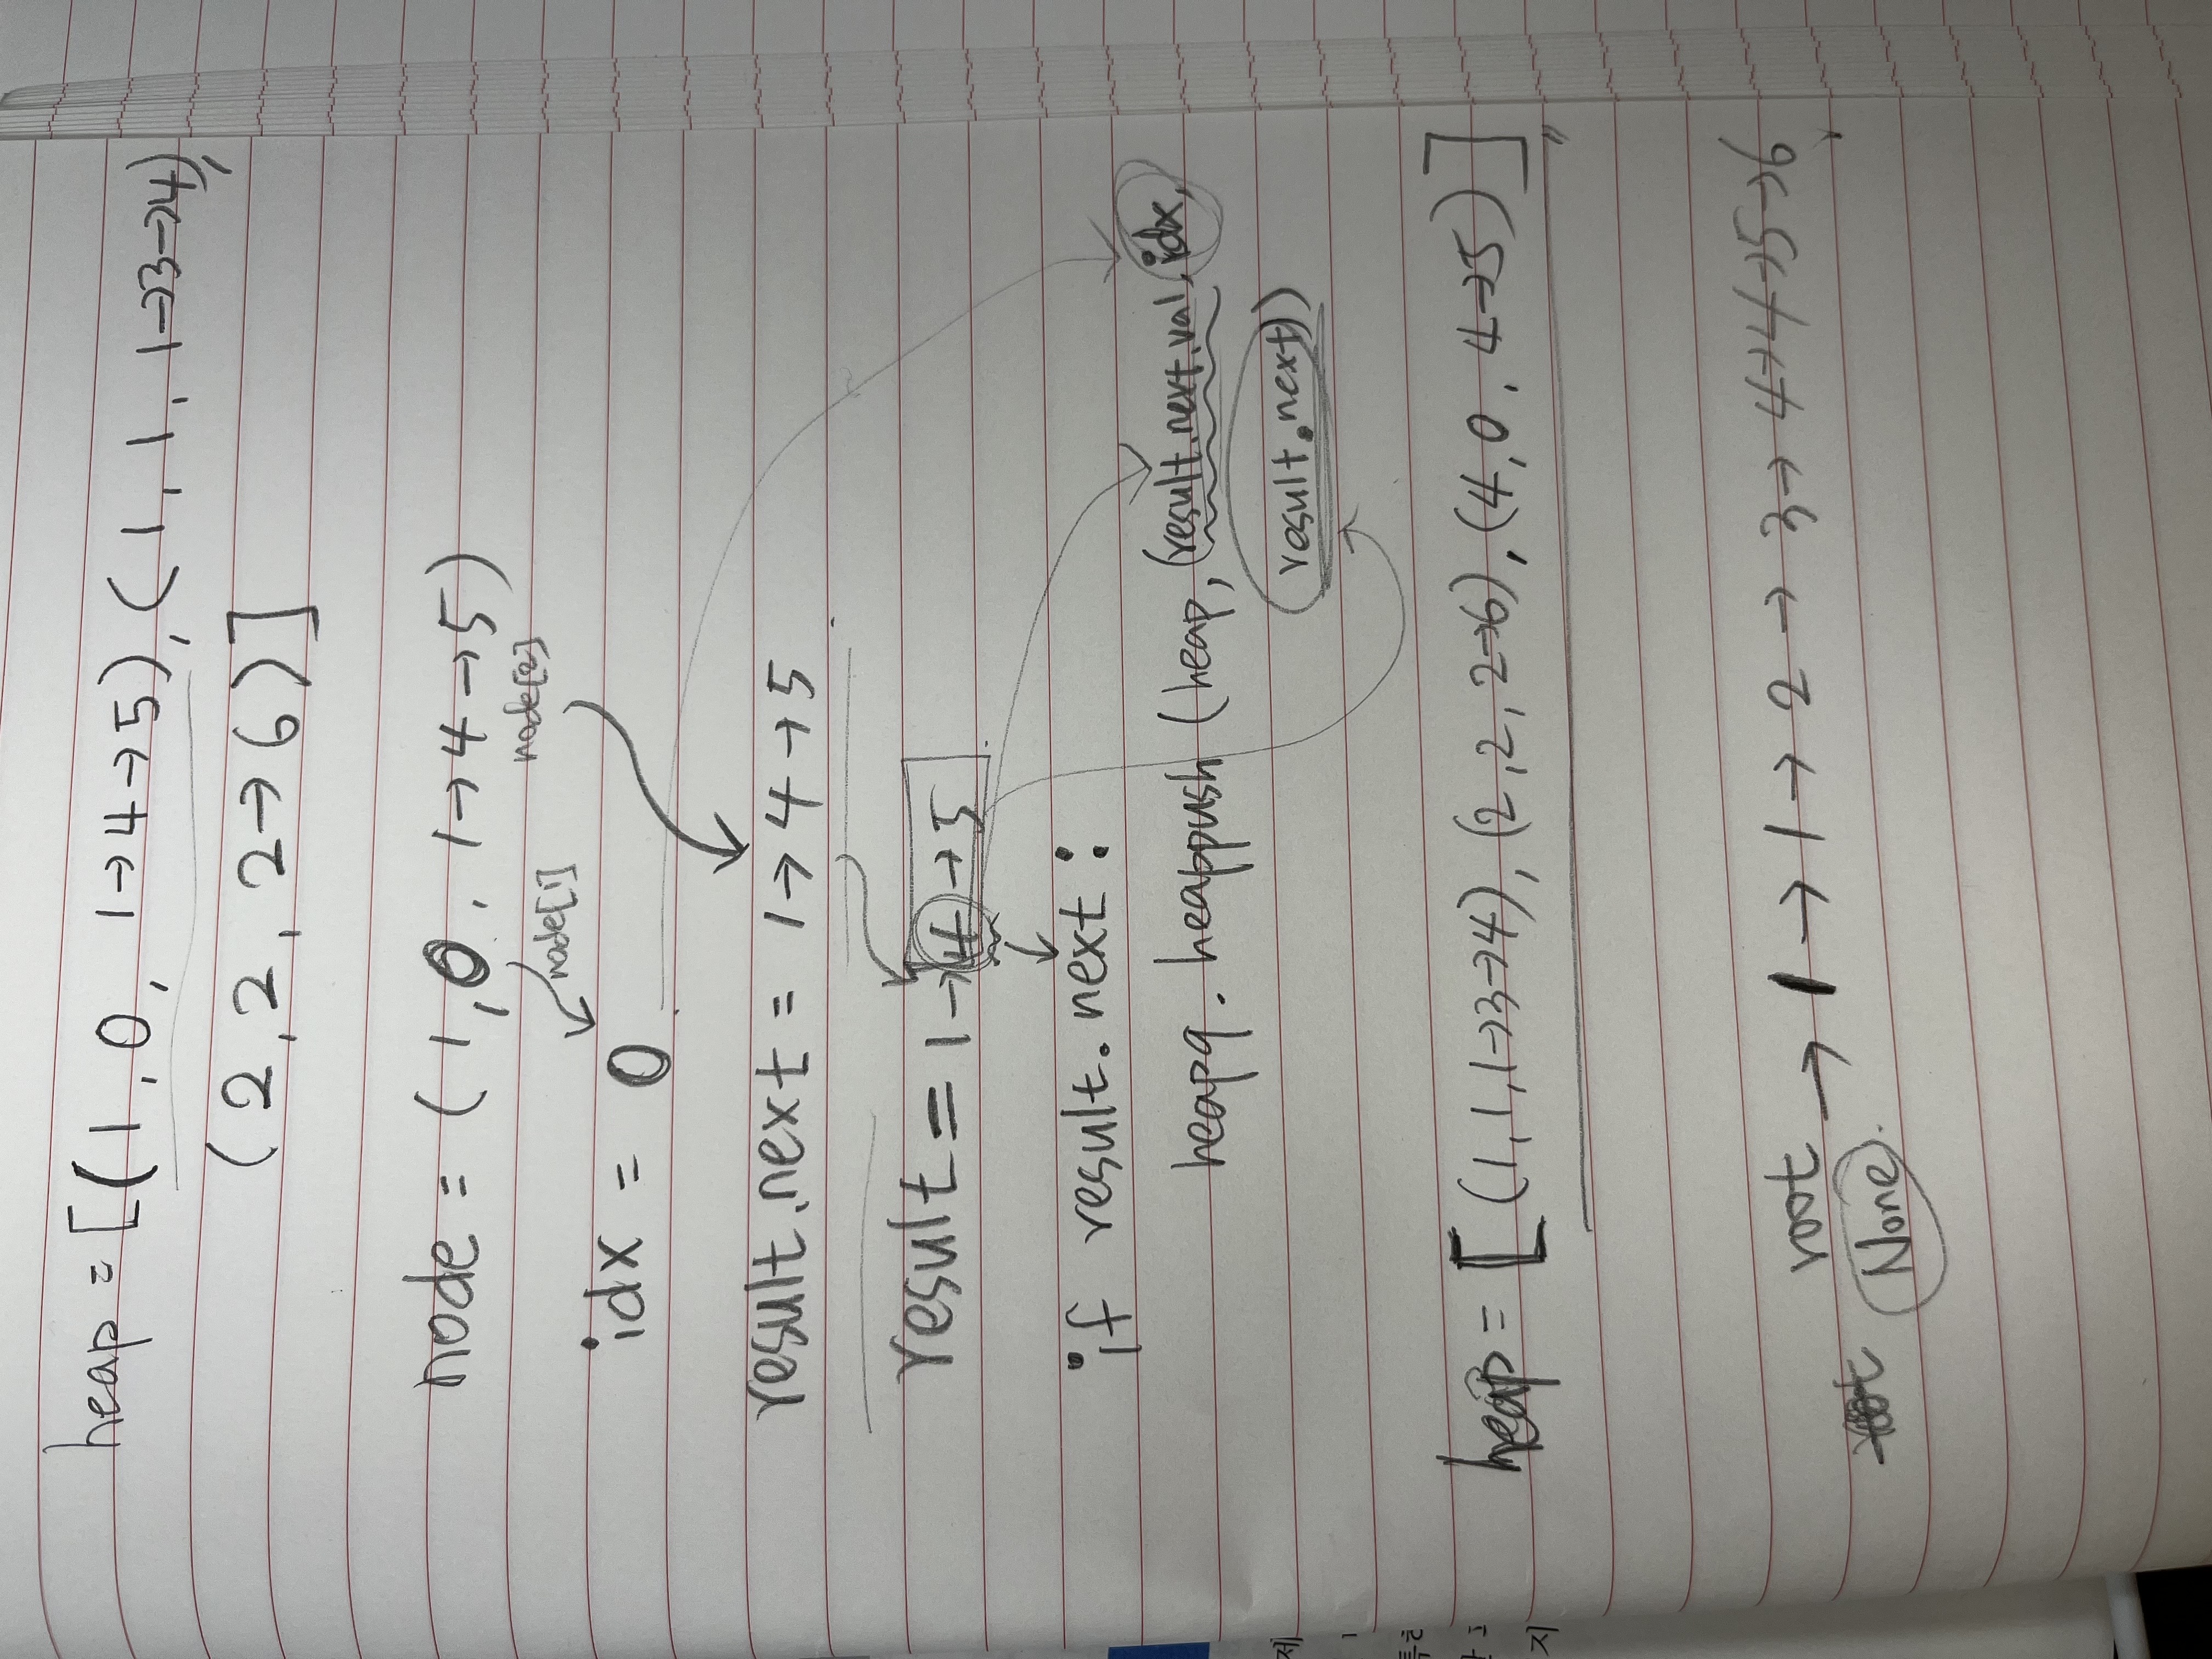 heap = [(1, 0, 1→4→5), (1, 1, 1→3→4),
(2, 2, 2→6)]
node = (1, 0, 1→4→5)
node[1]
node[2]
idx = 0
result.next = 1→4→5
result = 1→4→5
if result.next:
heapq. heappush (heap, (result.next.val, idx,
result.next))
heap = [(1, 1, 1→3→4), (2, 2, 2→6), (4, 0, 4→5)]
root → 1 → 1 → 2 → 3 → 4→4→5→6
None
제
지